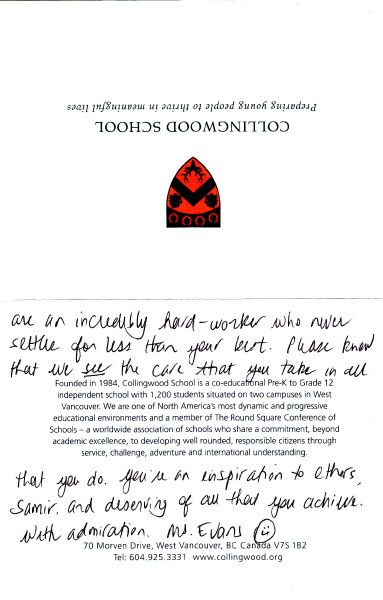 COLLINGWOOD SCHOOL
Preparing young people to thrive in meaningful lives
are an incredibly hard-worker who never
settle for less than your best. Please know
that we see the care that you take in all
Founded in 1984, Collingwood School is a co-educational Pre-K to Grade 12
independent school with 1,200 students situated on two campuses in West
Vancouver. We are one of North America's most dynamic and progressive
educational environments and a member of The Round Square Conference of
Schools – a worldwide association of schools who share a commitment, beyond
academic excellence, to developing well rounded, responsible citizens through
service, challenge, adventure and international understanding.
that you do. You're an inspiration to others,
Samir, and deserving of all that you achieve.
With admiration, Ms. Evans
70 Morven Drive, West Vancouver, BC Canada V7S 1B2
Tel: 604.925.3331 www.collingwood.org